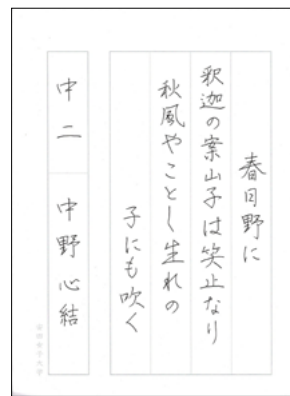 春日野に
釈迦の案山子は笑止なり
秋風やことし生れの
子にも吹く
中二 中野心結